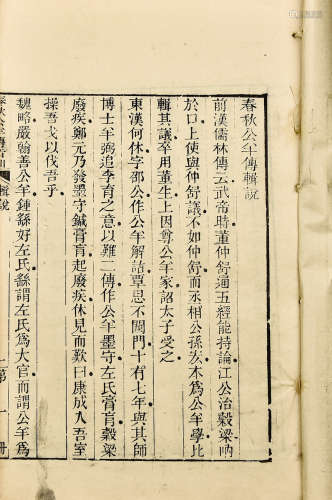 春秋公羊傳輯說
前漢儒林傳云武帝時董仲舒通五經能持論江公治穀梁吶
於口上使與仲舒議不如仲舒而丞相公孫宏本爲公羊學比
輯其議卒用董生上因尊公羊家詔太子受之
東漢何休字邵公作公羊解詁覃思不闚門十有七年與其師
博士羊弼追李育之意以難二傳作公羊墨守左氏膏肓穀梁
廢疾鄭元乃發墨守鍼膏肓起廢疾休見而歎曰康成入吾室
操吾戈以伐吾乎
魏略嚴翰善公羊鍾繇好左氏繇謂左氏爲大官而謂公羊爲
輯說
一
第一冊